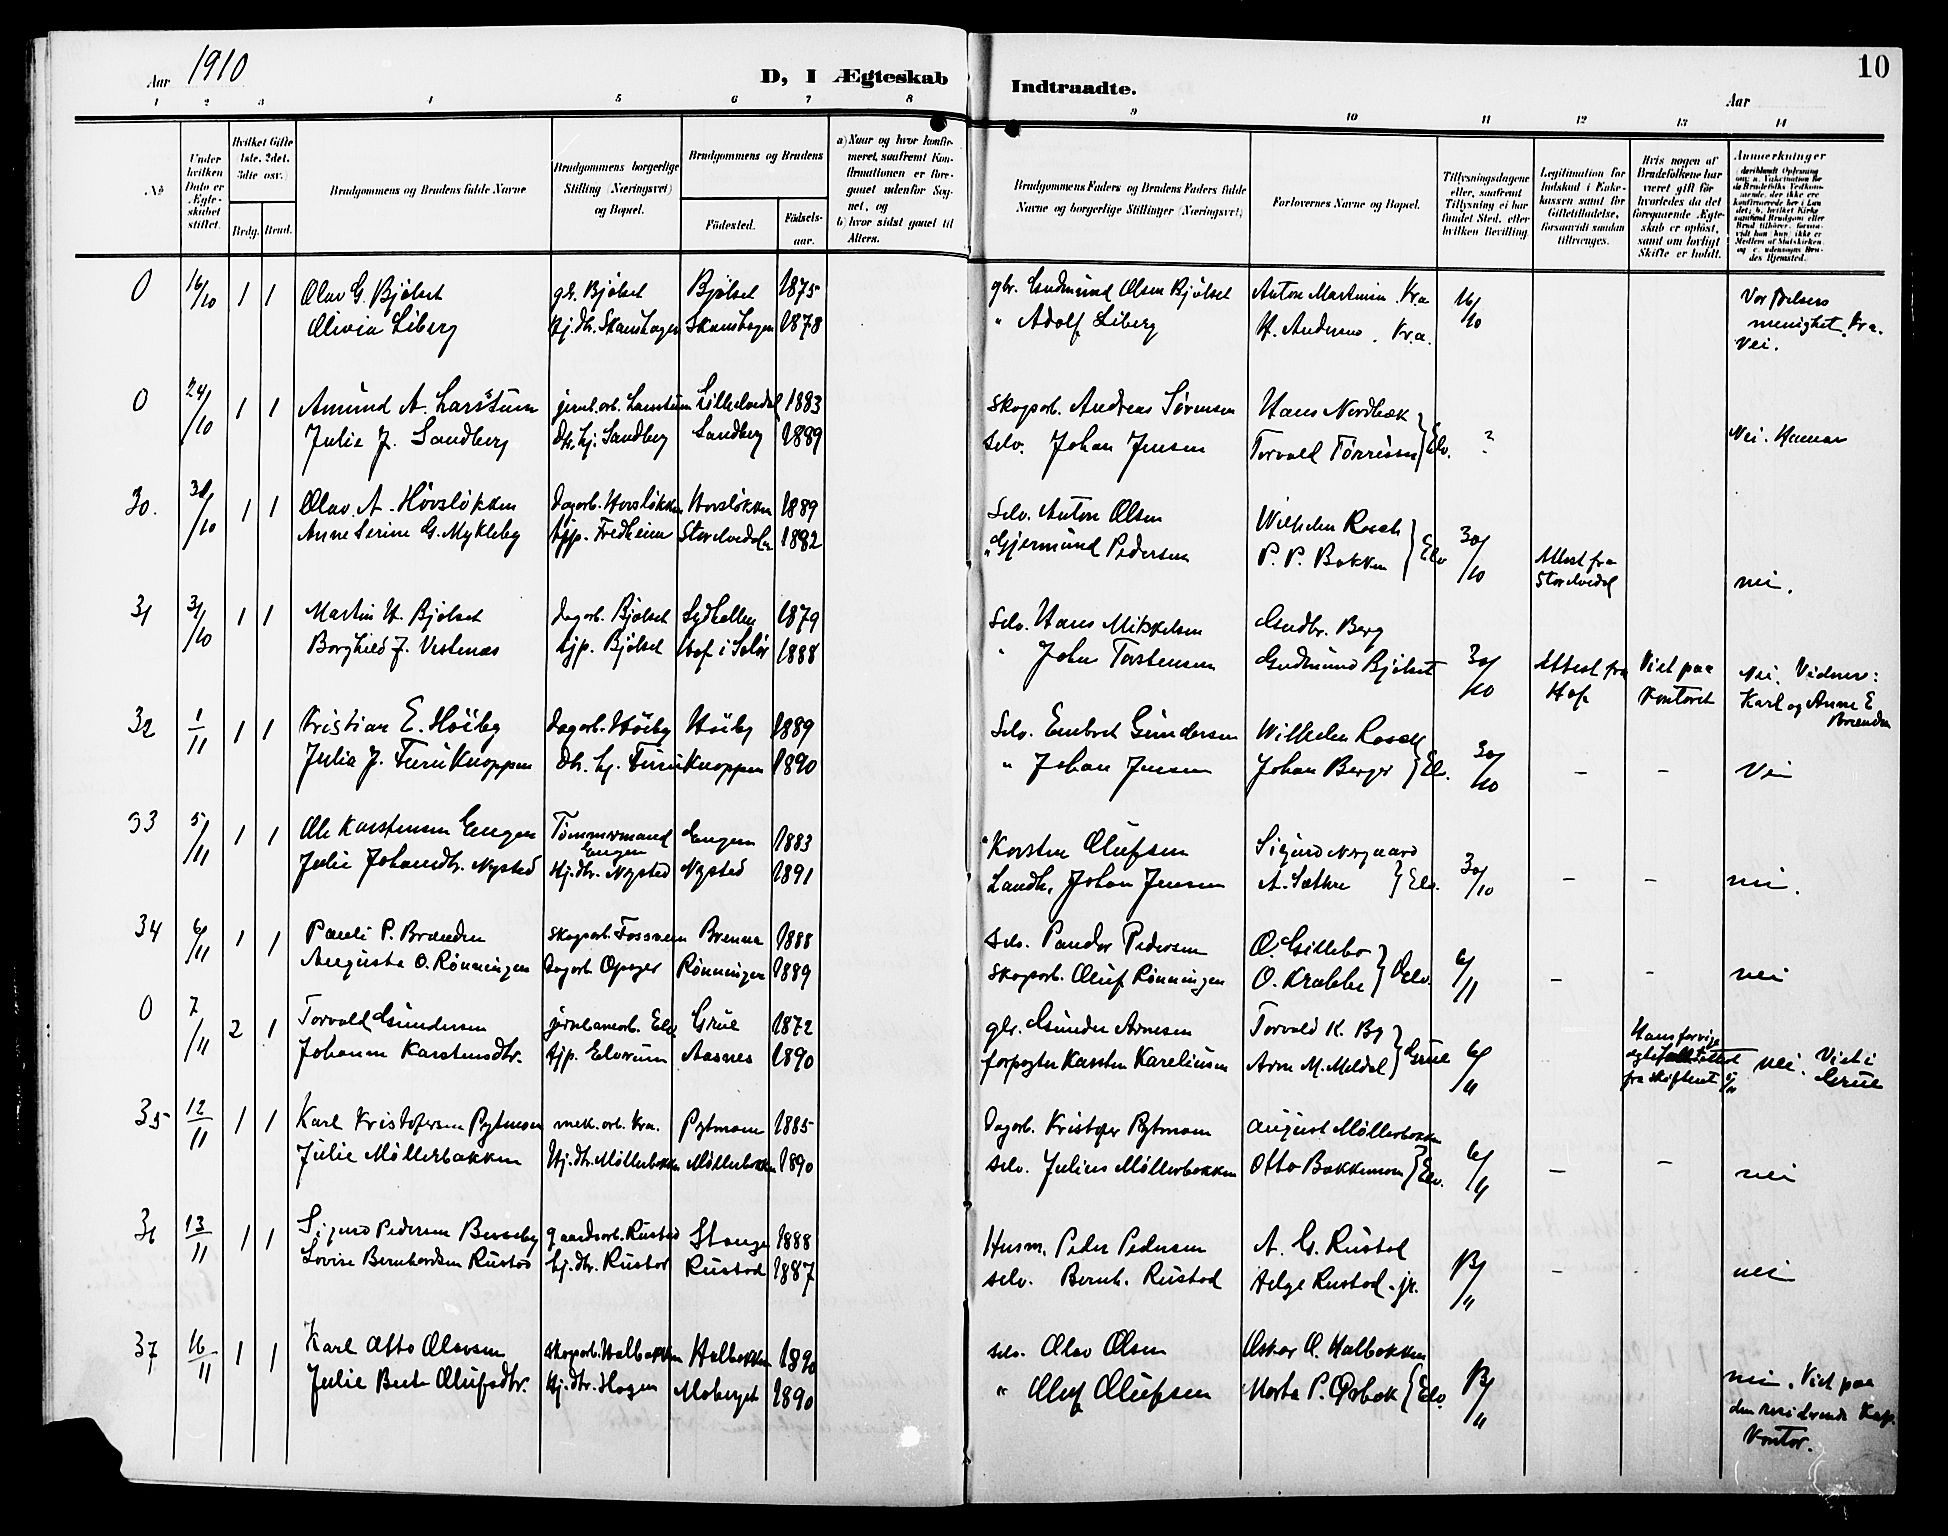 Aar 1910
D, I Ægteskab
Indtraadte.
10
Aar
1 2 3 4 5 6 7 8 9 10 11 12 13 14
No
Under hvilken Dato er Ægteskabet stiftet.
Hvilket Gifte 1ste, 2det, 3die osv.)
Brdg. Brud.
Brudgommens og Brudens fulde Navne
Brudgommens borgerlige Stilling (Næringsvei) og Bopæl.
Brudgommens og Brudens
Fødested.
Fødselsaar.
a) Naar og hvor konfirmeret, saafremt Konfirmationen er foregaaet udenfor Sognet, og
b) hvor sidst gaaet til Alters.
Brudgommens Faders og Brudens Faders fulde Navne og borgerlige Stillinger (Næringsvei)
Forlovernes Navne og Bopæl.
Tillysningsdagene eller, saafremt Tillysning ei har fundet Sted, efter hvilken Bevilling
Legitimation for Indskud i Enkekassen samt for Giftetilladelse, forsaavidt saadan tiltrænges.
Hvis nogen af Brudefolkene har været gift før hvorledes da det foregaaende Ægteskab er opløst, samt om lovligt Skifte er holdt.
Anmærkninger
0 16/10 1 1 Olav G. Bjølset gbr. Bjølset Bjølset 1875 gbr. Gudmund Olsen Bjølset Anton Martinsen Kra 16/10 Vor Frelsers
Olivia Liberg Hj. dtr. Skanshagen Skanshagen 1878 " Adolf Liberg H. Andersen, Kra. menighet, Kra.
Nei.
0 24/10 1 1 Amund A. Larstuen jernb.arb. Larsstuen Lillelvedal 1883 skogarb. Andreas Sørensen Hans Nordbæk
Julie J. Sandberg Dtr. hj. Sandberg Sandberg 1889 Selv. Johan Jensen Torvald Tørrissen } Elv. ? Nei. Hamar
30. 30/10 1 1 Olav A. Hovsløkken Dagarb. Hovsløkken Hovsløkken 1889 Selv. Anton Olsen Wilhelm Rosch
Anne Serine G. Mykleby tjp. Fredheim Storelvedalen 1882 " Gjermund Pedersen P. P. Bakken } Elv 30/10 Attest fra Storelvedal nei.
31 31/10 1 1 Martin H. Bjølset dagarb. Bjølset Sydhallen 1879 Selv. Hans Mikkelsen Gudbr. Berg
Borghild J. Vestenæs tjp. Bjølset Hof i Solør 1888 " Johan Torstensen Gudmund Bjølset 30/10 Attest fra Hof Viet paa Kontoret Nei. Vidner: Karl og Anne E Brænden
32 1/11 1 1 Kristian E. Høiby Dagarb. Høiby Høiby 1889 Selv. Embret Gundersen Wilhelm Rosch
Julia J. Furuknappen Dtr. hj. Furuknappen 1890 " Johan Jensen Johan Berger } Elv. 30/10 – – Nei
33 5/11 1 1 Ole Karstensen Engen Tømmermand Engen Engen 1883 " Karsten Olufsen Sigurd Norgaard
Julie Johansdtr. Nysted Hj. dtr. Nysted Nysted 1891 Landh. Johan Jensen A. Sæthre } Elv. 30/10 – – nei.
34 6/11 1 1 Pauli P. Brænden skogarb. Fossnen Brenna 1888 Selv. Pander Pedersen O. Gillebo
Augusta O. Rønningen Dagarb Opeger Rønningen 1889 skogarb. Oluf Rønningen O. Krabbe } Elv. 6/11 – – nei
0 7/11 2 1 Torvald Gundersen jernbanearb. Elv. Grue 1872 gbr. Gunder Arnesen Torvald K. By
Johanne Karstensdtr. tjp. Elverum Aasnes 1890 forpagter Karsten Kareliusen Arne M. Meldal } Grue 6/11 Hans forrige fra skifteret nei. Viet i Grue
35 12/11 1 1 Karl Kristofersen Pytmoen mek. arb. Kra. Pytmoen 1885 Dagarb. Kristofer Pytmoen August Møllerbakken
Julie Møllerbakken Hj. dtr. Møllerbakken Møllerbakken 1890 selv. Julius Møllerbakken Otto Bakkemoen } Elv. 6/11 – – nei
36 13/11 1 1 Sigurd Pedersen Berseby gaardsarb. Rustad Stange 1888 Husm. Peder Pedersen A. G. Rustad
Lovise Bernhardsen Rustad hj. dtr. Rustad Rustad 1887 selv. Bernh. Rustad Helge Rustad jr. 13/11 – nei
37 16/11 1 1 Karl Otto Olavsen skogarb. Halbakken Halbakken 1890 selv. Olav Olsen Oskar O. Halbakken
Julie Berte Olufsdtr. Hj. dtr. Hagen Moberget 1890 " Oluf Olufsen Marta P. Ørbæk } Elv. 13/11 nei. Viet paa den residerende Kap. Kontor.